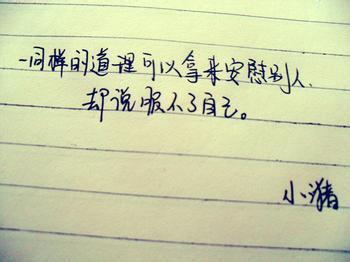 一同样的道理可以拿来安慰别人,
却说服不了自己。
小猪